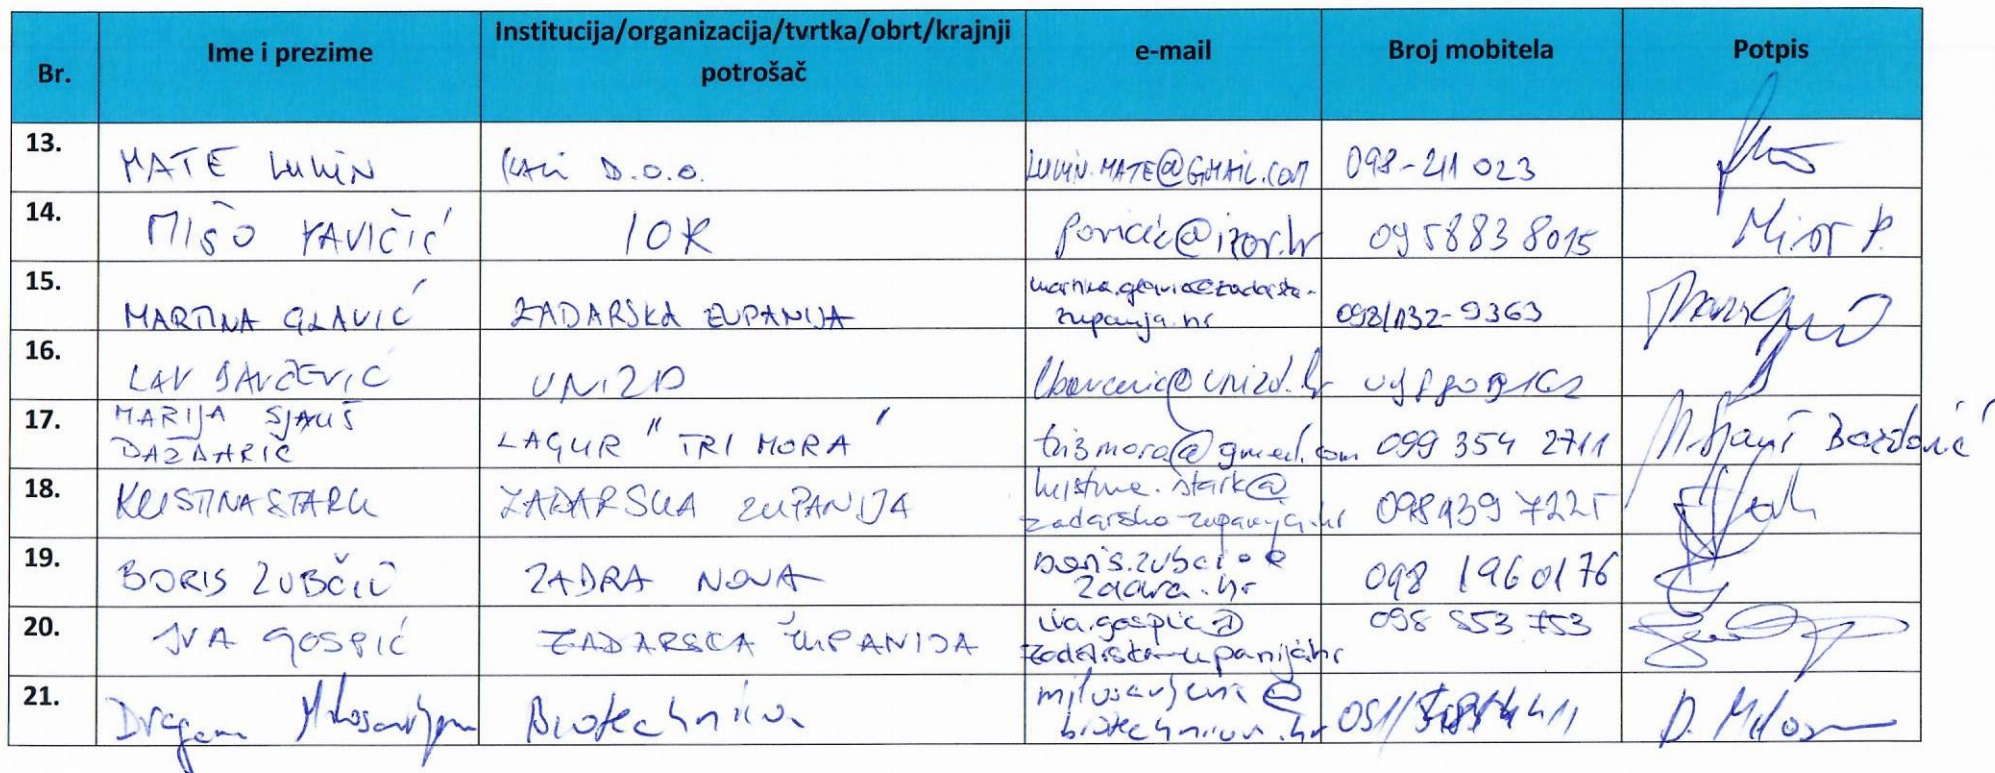 Br. Ime i prezime Institucija/organizacija/tvrtka/obrt/krajnji potrošač e-mail Broj mobitela Potpis
13. MATE LUKIN KALI D.O.O. LUKIN.MATE@GMAIL.COM 098-211 023
14. MIŠO PAVIČIĆ IOR pavicic@izor.hr 095 883 8015 Mišo P.
15. MARTINA GLAVIĆ ZADARSKA ŽUPANIJA martina.glavic@zadarska-zupanija.hr 098/132-9363
16. LAV BAVČEVIĆ UNIZD lbavcevic@unizd.hr
17. MARIJA SJAUŠ BAŽDARIĆ LAGUR "TRI MORA" tri3mora@gmail.com 099 354 2711 M. Sjauš Baždarić
18. KRISTINA STARK ZADARSKA ŽUPANIJA kristina.stark@zadarska-zupanija.hr 098 939 7225
19. BORIS ZUBČIĆ ZADRA NOVA boris.zubcic@zadra.hr 098 196 0176
20. IVA GOSPIĆ ZADARSKA ŽUPANIJA iva.gospic@zadarska-zupanija.hr 098 853 753
21. Dragan Milosavljević Biotechnicon milosavljevic@biotechnicon.hr D. Milos